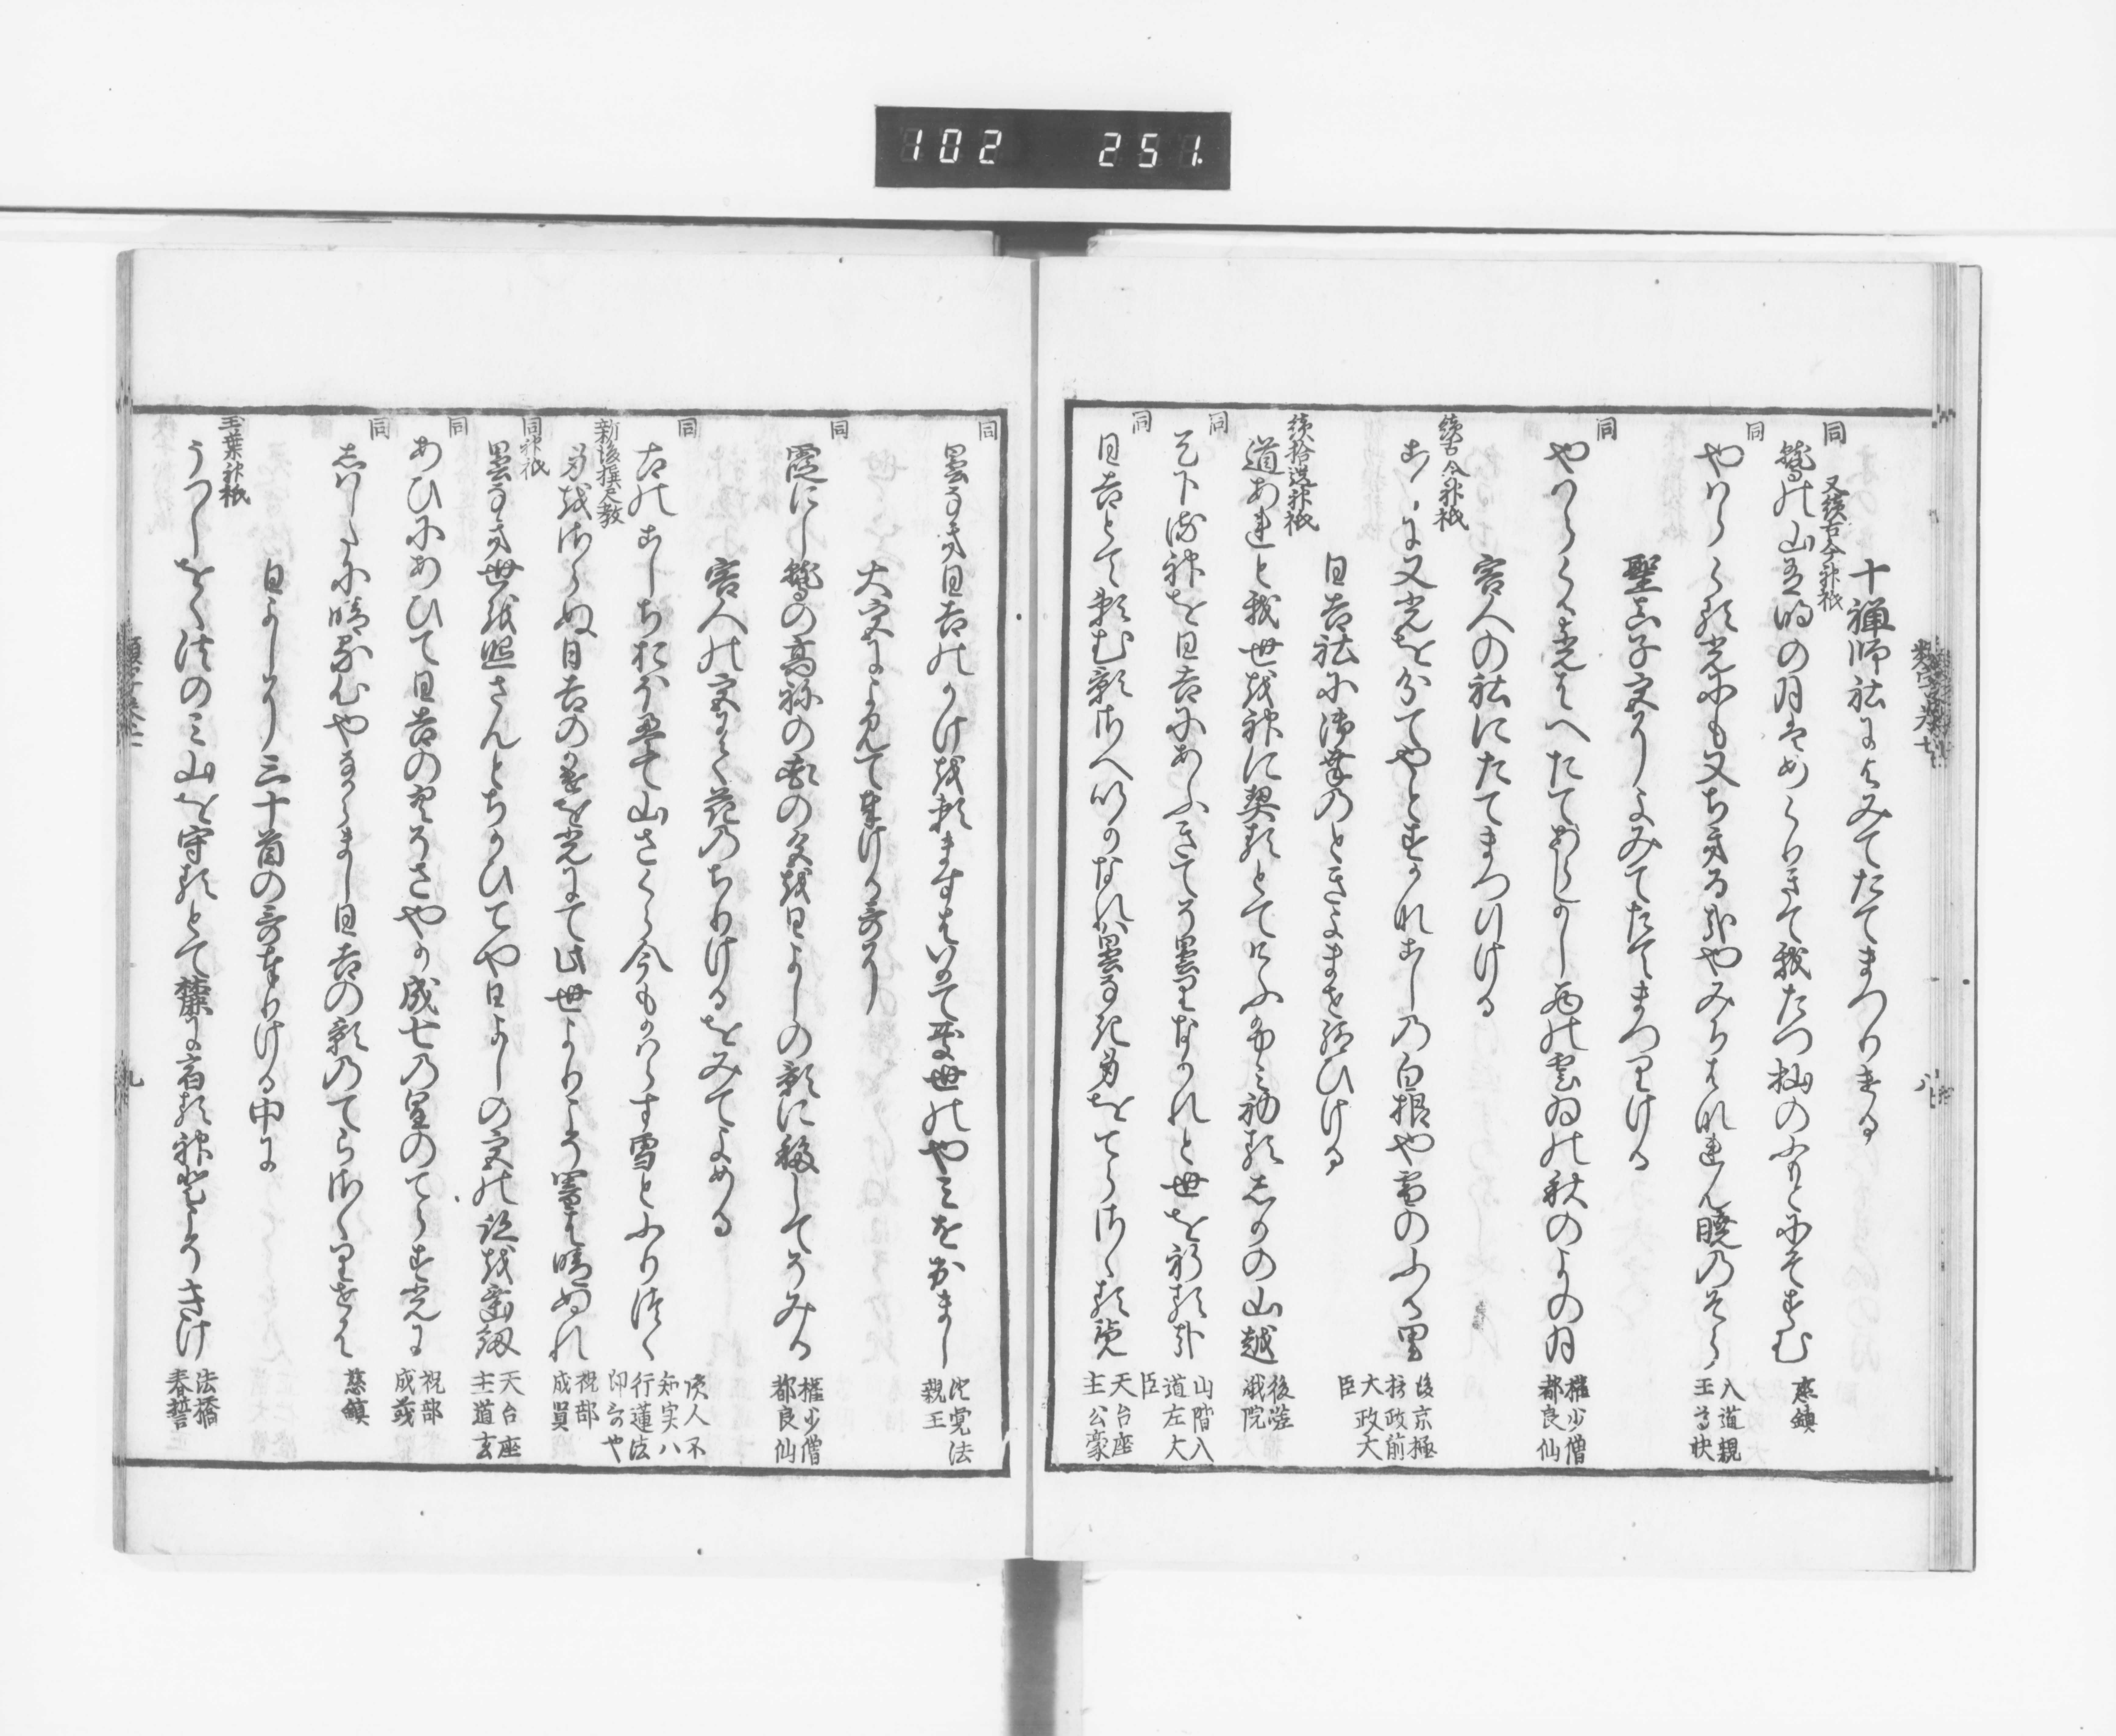 102 251.
十禅師社によみてたてまつりける
同
又続古今神祇
鷲の山有明の月はめくりきて我たつ杣のふもとにそすむ
慈鎮
同
やはらくる光にも又ちきる哉やみちはれなん暁のそら
入道親
王尊快
聖真子宮にてよみてたてまつりける
同
やはらくる光はへたてあらしかし西の雲ゐの秋のよの月
権少僧
都良仙
客人の社にたてまつりける
続古今神祇
こゝに又光を分てやとすかなこしの白根や雪のふる里
後京極
摂政前
大政大
臣
日吉社に御幸のときよませ給ひける
続拾遺神祇
道あれと我世を神に契るとてけふふみ初るしかの山越
後嵯
峨院
同
天下る神を日吉にあふきてそ曇りなかれと世を祈る哉
山階入
道左大
臣
同
日吉とて頼む影さへいかなれは曇る我身をてらさゝるらん
天台座
主公豪
八
同
曇なき日吉のかけを頼ますはいかて憂世のやみをおまし
覚法
親王
大宮によみて奉ける哥に
同
霞にし鷲の高ねの花の色を日よしの影に移してそみる
権少僧
都良仙
客人の宮にて花のちりけるをみてよめる
同
古のこしち おほえて山さくら今もかはらす雪とふりつゝ
読人不
知実ハ
行蓮法
印哥や
新後撰尺教
身をさらぬ日吉の影を光にて此世よりこそ闇は晴ぬれ
祝部
成賢
同神祇
曇なき世を照さんとちかひてや日よしの宮の跡を垂劔
天台座
主道玄
同
あひにあひて日吉の空そさやか成七の星のてらす光に
祝部
成茂
同
しはしたに晴る心やなからまし日吉の影のてらさゝりせは
慈鎮
日よしにて三十首の哥奉りける中に
玉葉神祇
うつしをく法のみ山を守るとて麓に宿る神とこそきけ
法橋
春誓
九